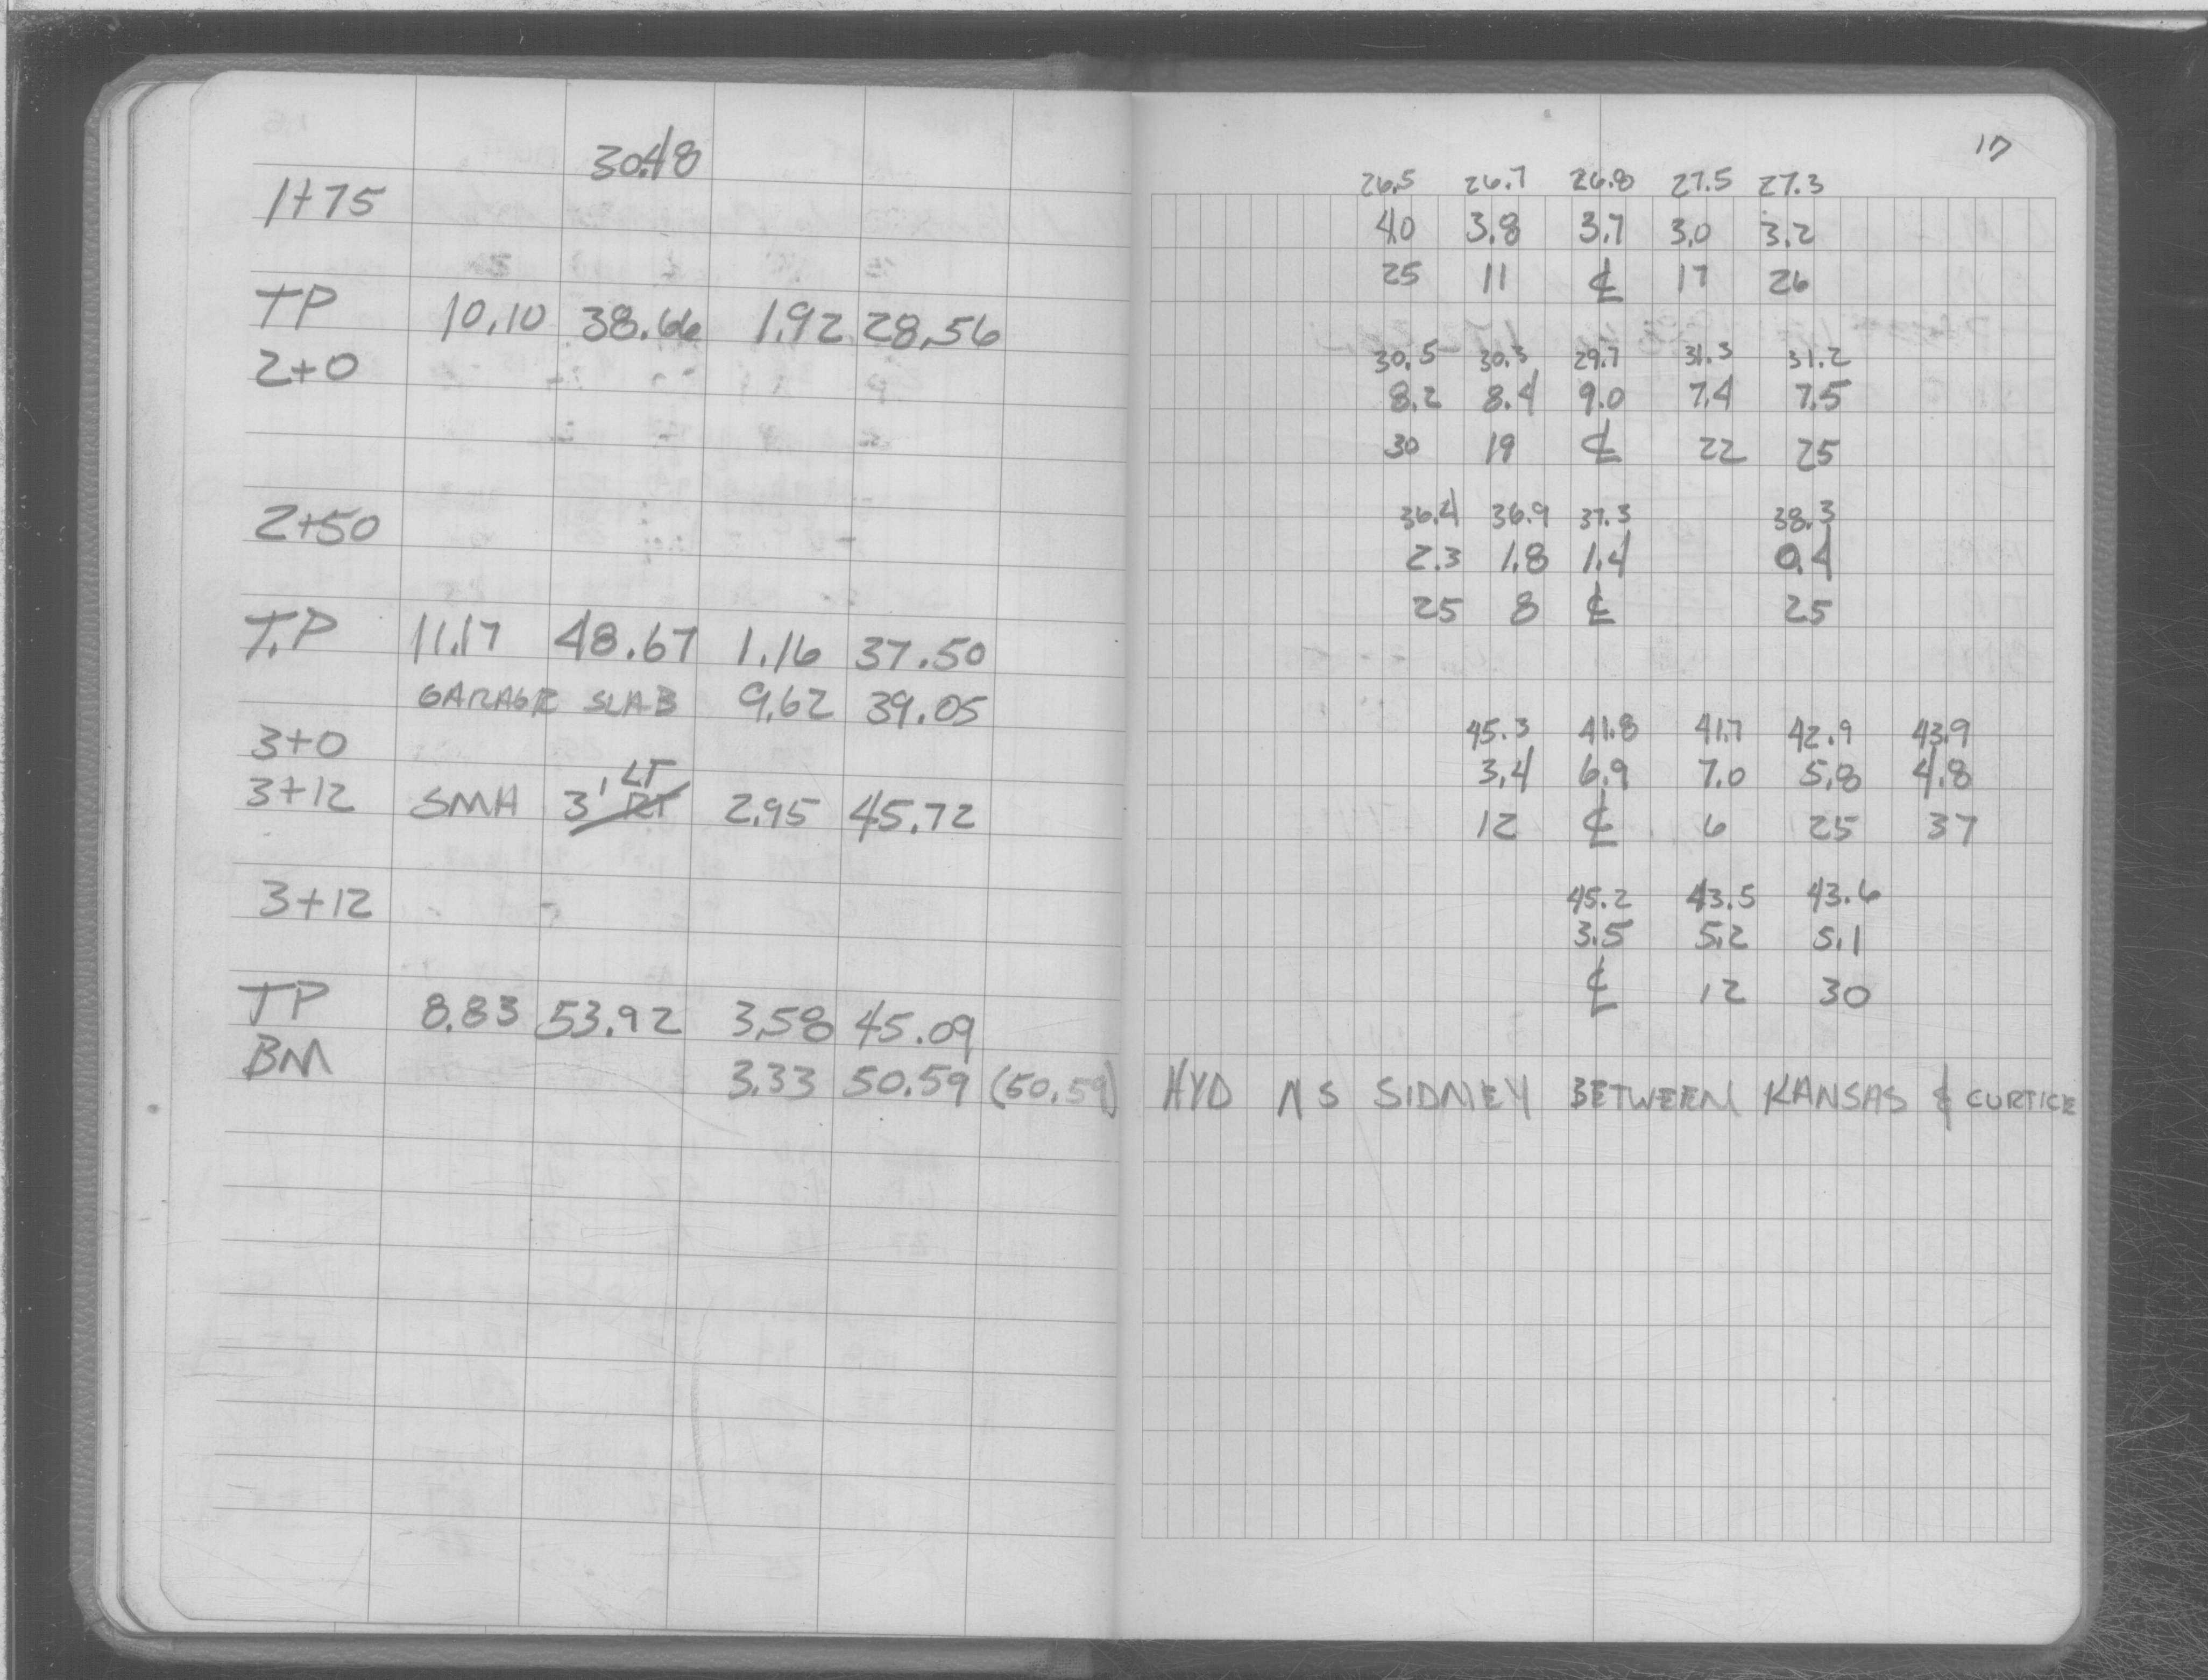 30.48
1+75
TP 10.10 38.66 1.92 28.56
2+0
2+50
T.P 11.17 48.67 1.16 37.50
GARAGE SLAB 9.62 39.05
3+0
LT
3+12 SMH 3' RT 2.95 45.72
3+12
TP 8.83 53.92 3.58 45.09
BM 3.33 50.59 (50.59)
17
26.5 26.7 26.8 27.5 27.3
4.0 3.8 3.7 3.0 3.2
25 11 ℄ 17 26
30.5 30.3 29.7 31.3 31.2
8.2 8.4 9.0 7.4 7.5
30 19 ℄ 22 25
36.4 36.9 37.3 38.3
2.3 1.8 1.4 0.4
25 8 ℄ 25
45.3 41.8 41.7 42.9 43.9
3.4 6.9 7.0 5.8 4.8
12 ℄ 6 25 37
45.2 43.5 43.6
3.5 5.2 5.1
℄ 12 30
HYD N S SIDNEY BETWEEN KANSAS & CURTICE